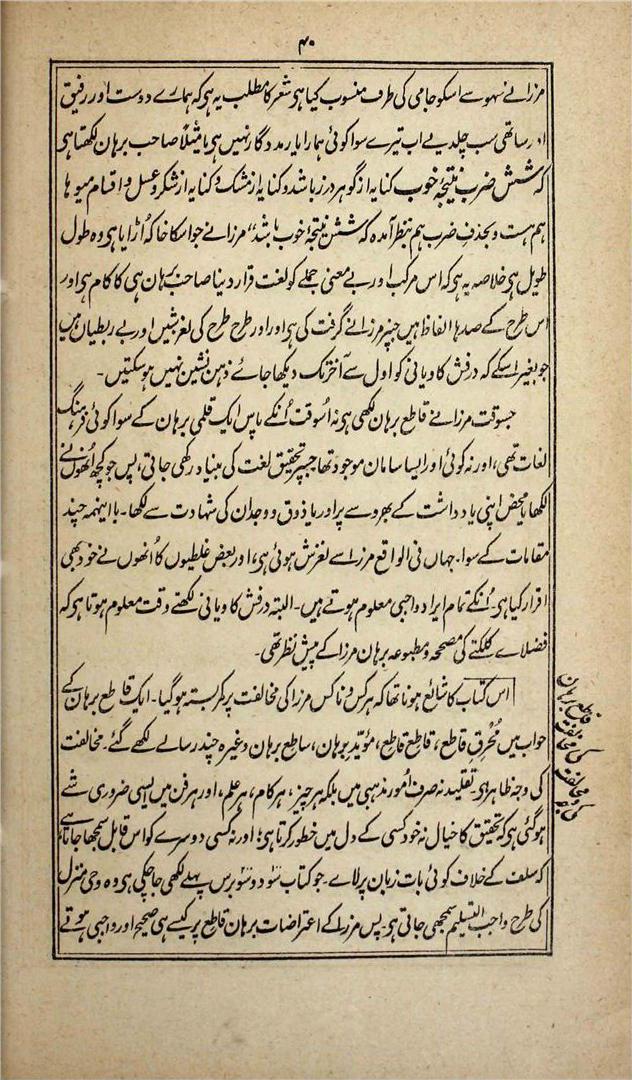 ۴۰
مرزا نے سہو سے اسکو جامی کی طرف منسوب کیا ہی شعر کا مطلب یہ ہی کہ ہمارے دوست اور رفیق
اور ساتھی سب چلدیے اب تیرے سوا کوئی ہمارا یار مددگار نہیں ہی یا مثلاً صاحب برہان لکھتا ہی
کہ شش ضرب نتیجۂ خوب کنایہ از گوہر و زر باشد و کنایہ از مشک و کنایہ از شکر و عسل و اقسام میوہا
ہم ہست و بحذف ضرب ہم بنظر آمدہ کہ شش نتیجۂ خوب باشد" مرزا نے جو اسکا خاکہ اُڑایا ہی وہ طول
طویل ہی خلاصہ یہ ہی کہ اس مرکب اور بے معنی جملے کو لغت قرار دینا صاحب برہان ہی کا کام ہی اور
اس طرح کے صدہا الفاظ ہیں جنپر مرزا نے گرفت کی ہی اور اور طرح طرح کی لغزشیں اور بے ربطیاں ہیں
جو بغیر اسکے کہ درفش کاویانی کو اول سے آخر تک دیکھا جائے ذہن نشین نہیں ہو سکتیں۔
جسوقت مرزا نے قاطع برہان لکھی ہی نہ اُسوقت اُنکے پاس ایک قلمی برہان کے سوا کوئی فرہنگ
لغات تھی، اور نہ کوئی اور ایسا سامان موجود تھا جسپر تحقیق لغت کی بنیاد رکھی جاتی، پس جو کچھ اُنھوں نے
لکھا یا محض اپنی یادداشت کے بھروسے پر اور یا ذوق و وجدان کی شہادت سے لکھا۔ با اینہمہ چند
مقامات کے سوا۔ جہاں فی الواقع مرزا سے لغزش ہوئی ہی، اور بعض غلطیوں کا اُنھوں نے خود بھی
اقرار کیا ہی۔ اُنکے تمام ایراد واجبی معلوم ہوتے ہیں۔ البتہ درفش کاویانی لکھتے وقت معلوم ہوتا ہی کہ
فضلاے کلکتے کی مصححہ و مطبوعہ برہان مرزا کے پیش نظر تھی۔
اس کتاب کا شائع ہونا تھا کہ ہر کس و ناکس مرزا کی مخالفت پر کمر بستہ ہو گیا۔ ایک قاطع برہان کے
جواب میں محرق قاطع، قاطع قاطع، مؤید برہان، ساطع برہان وغیرہ چند رسالے لکھے گئے۔ مخالفت
کی وجہ ظاہر ہی۔ تقلید نہ صرف اُمور مذہبی میں بلکہ ہر چیز، ہر کام، ہر علم، اور ہر فن میں ایسی ضروری شے
ہو گئی ہی کہ تحقیق کا خیال نہ خود کسی کے دل میں خطور کرتا ہی؛ اور نہ کسی دوسرے کو اس قابل سمجھا جاتا ہے
کہ سلف کے خلاف کوئی بات زبان پر لاے۔ جو کتاب سو دو سو برس پہلے لکھی جا چکی ہی وہ وحی منزل
کی طرح واجب التسلیم سمجھی جاتی ہی۔ پس مرزا کے اعتراضات برہان قاطع پر کیسے ہی صحیح اور واجبی ہوتے
قاطع برہان
کی مخالفت